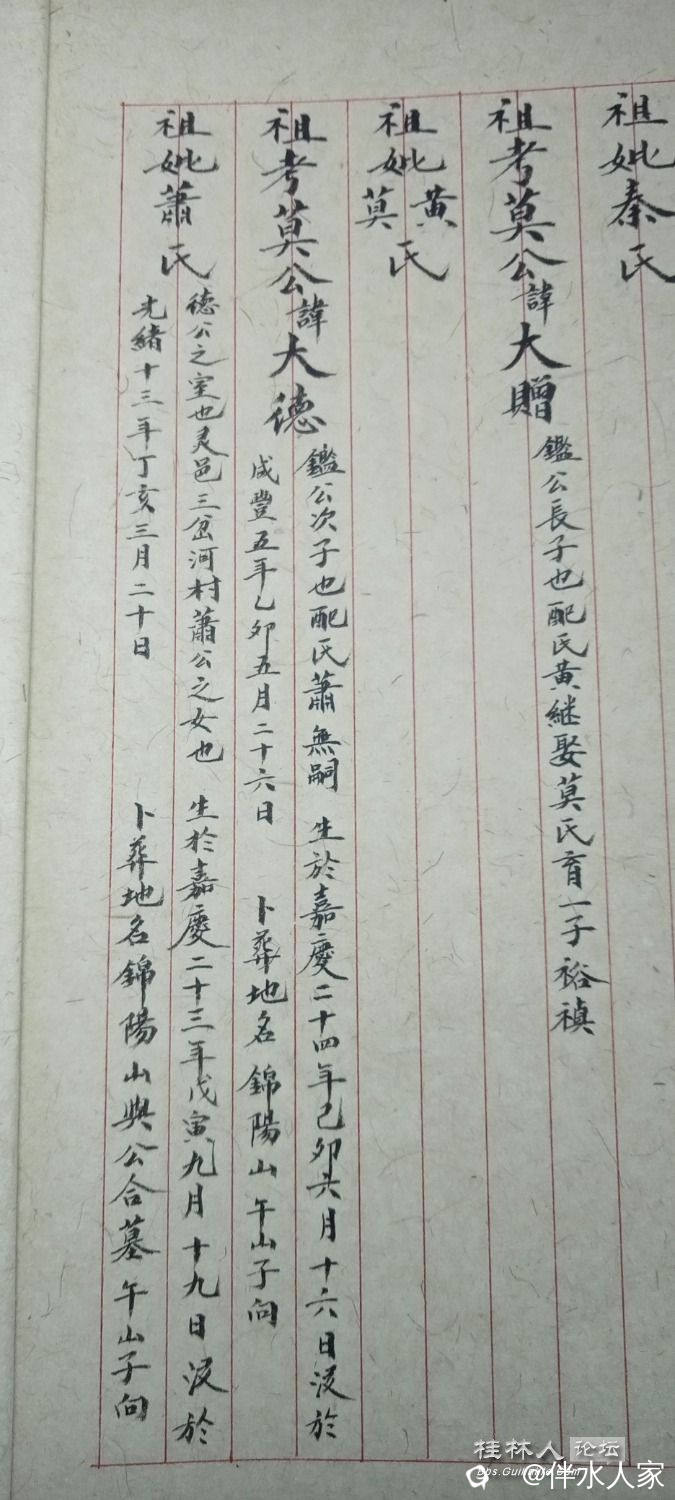 祖妣秦氏
祖考莫公諱大贈
鑑公長子也配氏黄継娶莫氏育一子裕禎
祖妣黄莫氏
祖考莫公諱大德
鑑公次子也配氏蕭無嗣 生於嘉慶二十四年己卯六月十六日没於
咸豐五年乙卯五月二十六日 卜葬地名錦陽山午山子向
祖妣蕭氏
德公之室也灵邑三岔河村蕭公之女也 生於嘉慶二十三年戊寅九月十九日没於
光緒十三年丁亥三月二十日 卜葬地名錦陽山與公合墓午山子向
桂林人论坛
bbs.Guilinlife.com
@伴水人家